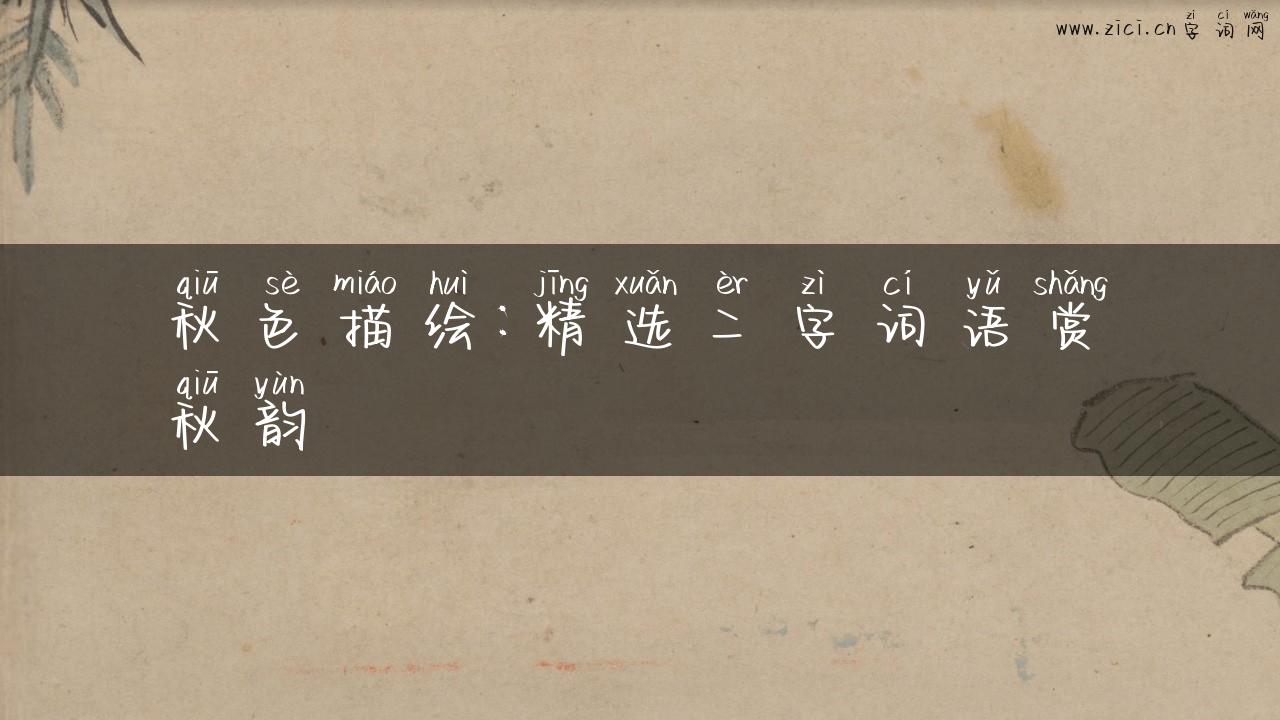 zì cí wǎng
www.zici.cn 字词网
qiū sè miáo huì jīng xuǎn èr zì cí yǔ shǎng
秋色描绘：精选二字词语赏
qiū yùn
秋韵